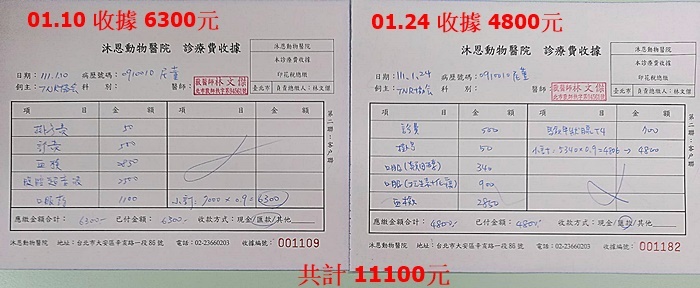 01.10 收據 6300元
沐恩動物醫院 診療費收據
沐恩動物醫院
本診療費收據
印花稅總繳
臺北市 負責總繳人：林文傑
日期：111.1.10 病歷號碼：0910010
飼主： 科 別： 醫師：
獸醫師林文傑
項 目 金 額 項 目 金 額
掛號費 50
診費 500
血檢 2850
腹部超音波 2500
口服藥 1100 小計：7000×0.90 6300
應繳金額合計：6300- 已付金額：6300- 收款方式：現金/匯款/其他
沐恩動物醫院 地址：台北市大安區辛亥路一段86號 電話：02-23660203 收據編號：001109
第二聯：客戶聯
01.24 收據 4800元
沐恩動物醫院 診療費收據
沐恩動物醫院
本診療費收據
印花稅總繳
臺北市 負責總繳人：林文傑
日期：111.1.24 病歷號碼：0910010
飼主： 科 別： 醫師：
獸醫師林文傑
項 目 金 額 項 目 金 額
診費 500 700
掛號 50 小計：5340×0.9=4806 → 4800
口服 340
口服 900
血檢 2850
應繳金額合計：4800- 已付金額：4800- 收款方式：現金/匯款/其他
沐恩動物醫院 地址：台北市大安區辛亥路一段86號 電話：02-23660203 收據編號：001182
第二聯：客戶聯
共計 11100元